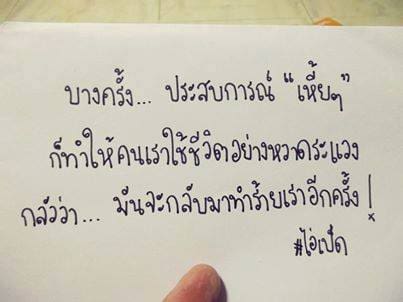 บางครั้ง... ประสบการณ์ "เหี้ยๆ"
ก็ทำให้คนเราใช้ชีวิตอย่างหวาดระแวง
กลัวว่า... มันจะกลับมาทำร้ายเราอีกครั้ง!
#ไอ่เป็ด